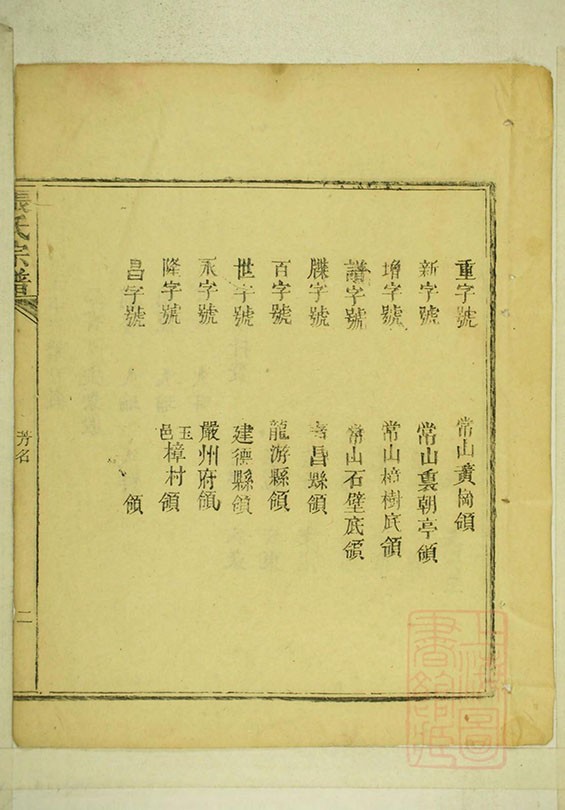 重字號 常山黃崗領
新字號 常山裏朝亭領
增字號 常山樟樹底領
譜字號 常山石壁底領
牒字號 壽昌縣領
百字號 龍游縣領
世字號 建德縣領
永字號 嚴州府領
隆字號 玉邑樟村領
昌字號 領
張氏宗譜 芳名 二
上海圖書館藏